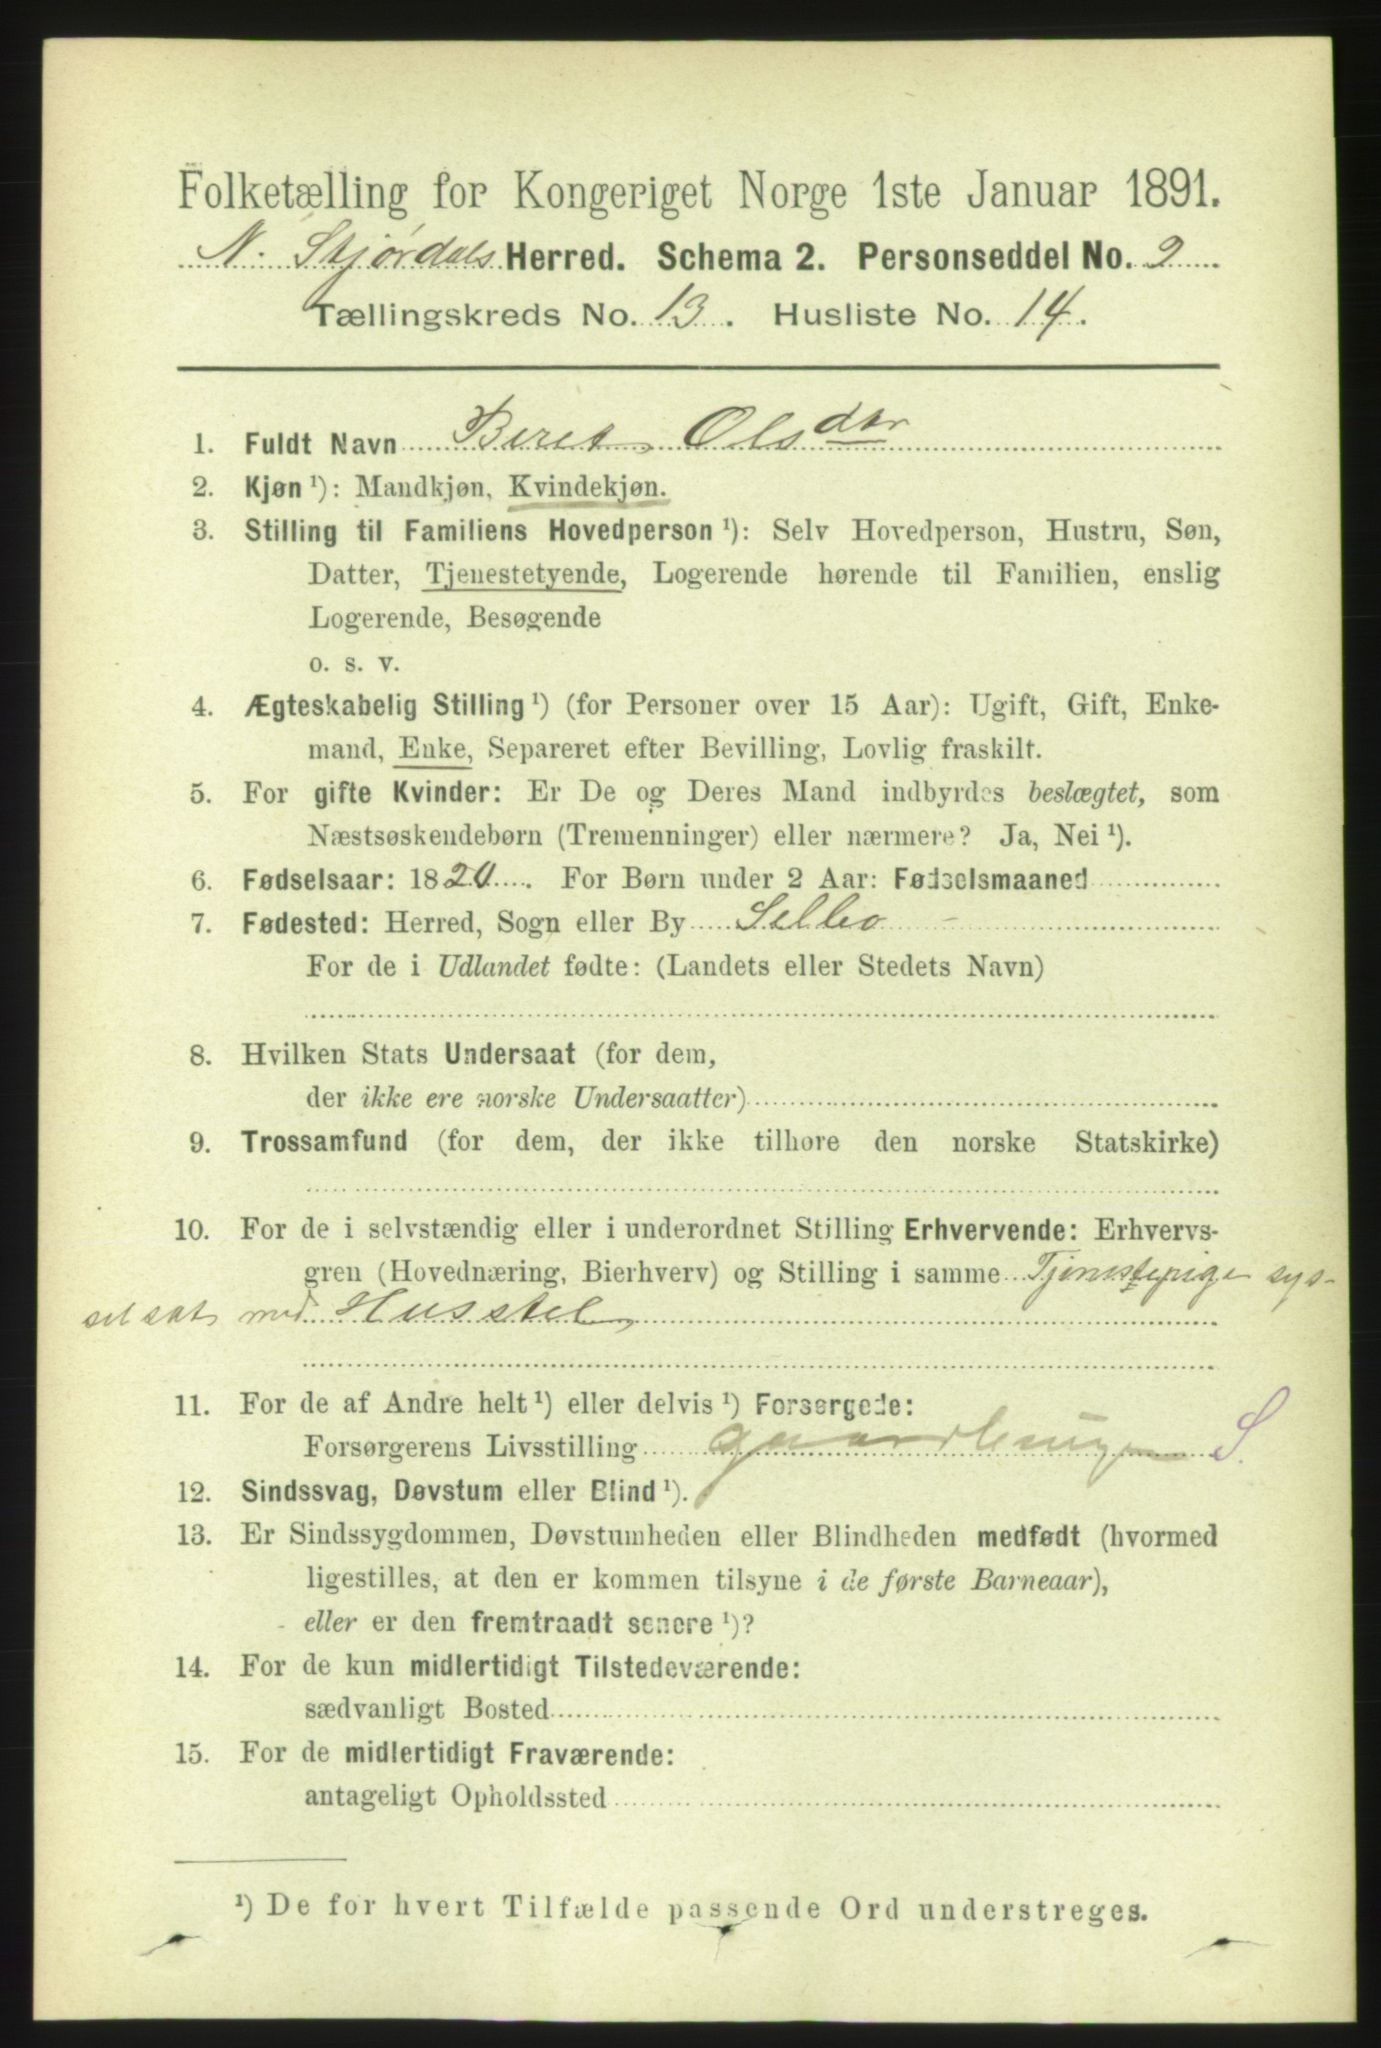 Folketælling for Kongeriget Norge 1ste Januar 1891.
N. Stjørdals Herred. Schema 2. Personseddel No. 2
Tællingskreds No. 13. Husliste No. 14.
1. Fuldt Navn Beret Olsdtr
2. Kjøn ¹): Mandkjøn, Kvindekjøn.
3. Stilling til Familiens Hovedperson ¹): Selv Hovedperson, Hustru, Søn,
Datter, Tjenestetyende, Logerende hørende til Familien, enslig
Logerende, Besøgende
o. s. v.
4. Ægteskabelig Stilling ¹) (for Personer over 15 Aar): Ugift, Gift, Enke-
mand, Enke, Separeret efter Bevilling, Lovlig fraskilt.
5. For gifte Kvinder: Er De og Deres Mand indbyrdes beslægtet, som
Næstsøskendebørn (Tremenninger) eller nærmere? Ja, Nei ¹).
6. Fødselsaar: 1820. For Børn under 2 Aar: Fødselsmaaned
7. Fødested: Herred, Sogn eller By Selbo -
For de i Udlandet fødte: (Landets eller Stedets Navn)
8. Hvilken Stats Undersaat (for dem,
der ikke ere norske Undersaatter)
9. Trossamfund (for dem, der ikke tilhøre den norske Statskirke)
10. For de i selvstændig eller i underordnet Stilling Erhvervende: Erhvervs-
gren (Hovednæring, Bierhverv) og Stilling i samme Tjenestepige sys-
selsat med Husstel
11. For de af Andre helt ¹) eller delvis ¹) Forsørgede:
Forsørgerens Livsstilling S.
12. Sindssvag, Døvstum eller Blind ¹).
13. Er Sindssygdommen, Døvstumheden eller Blindheden medfødt (hvormed
ligestilles, at den er kommen tilsyne i de første Barneaar),
eller er den fremtraadt senere ¹)?
14. For de kun midlertidigt Tilstedeværende:
sædvanligt Bosted
15. For de midlertidigt Fraværende:
antageligt Opholdssted
¹) De for hvert Tilfælde passende Ord understreges.